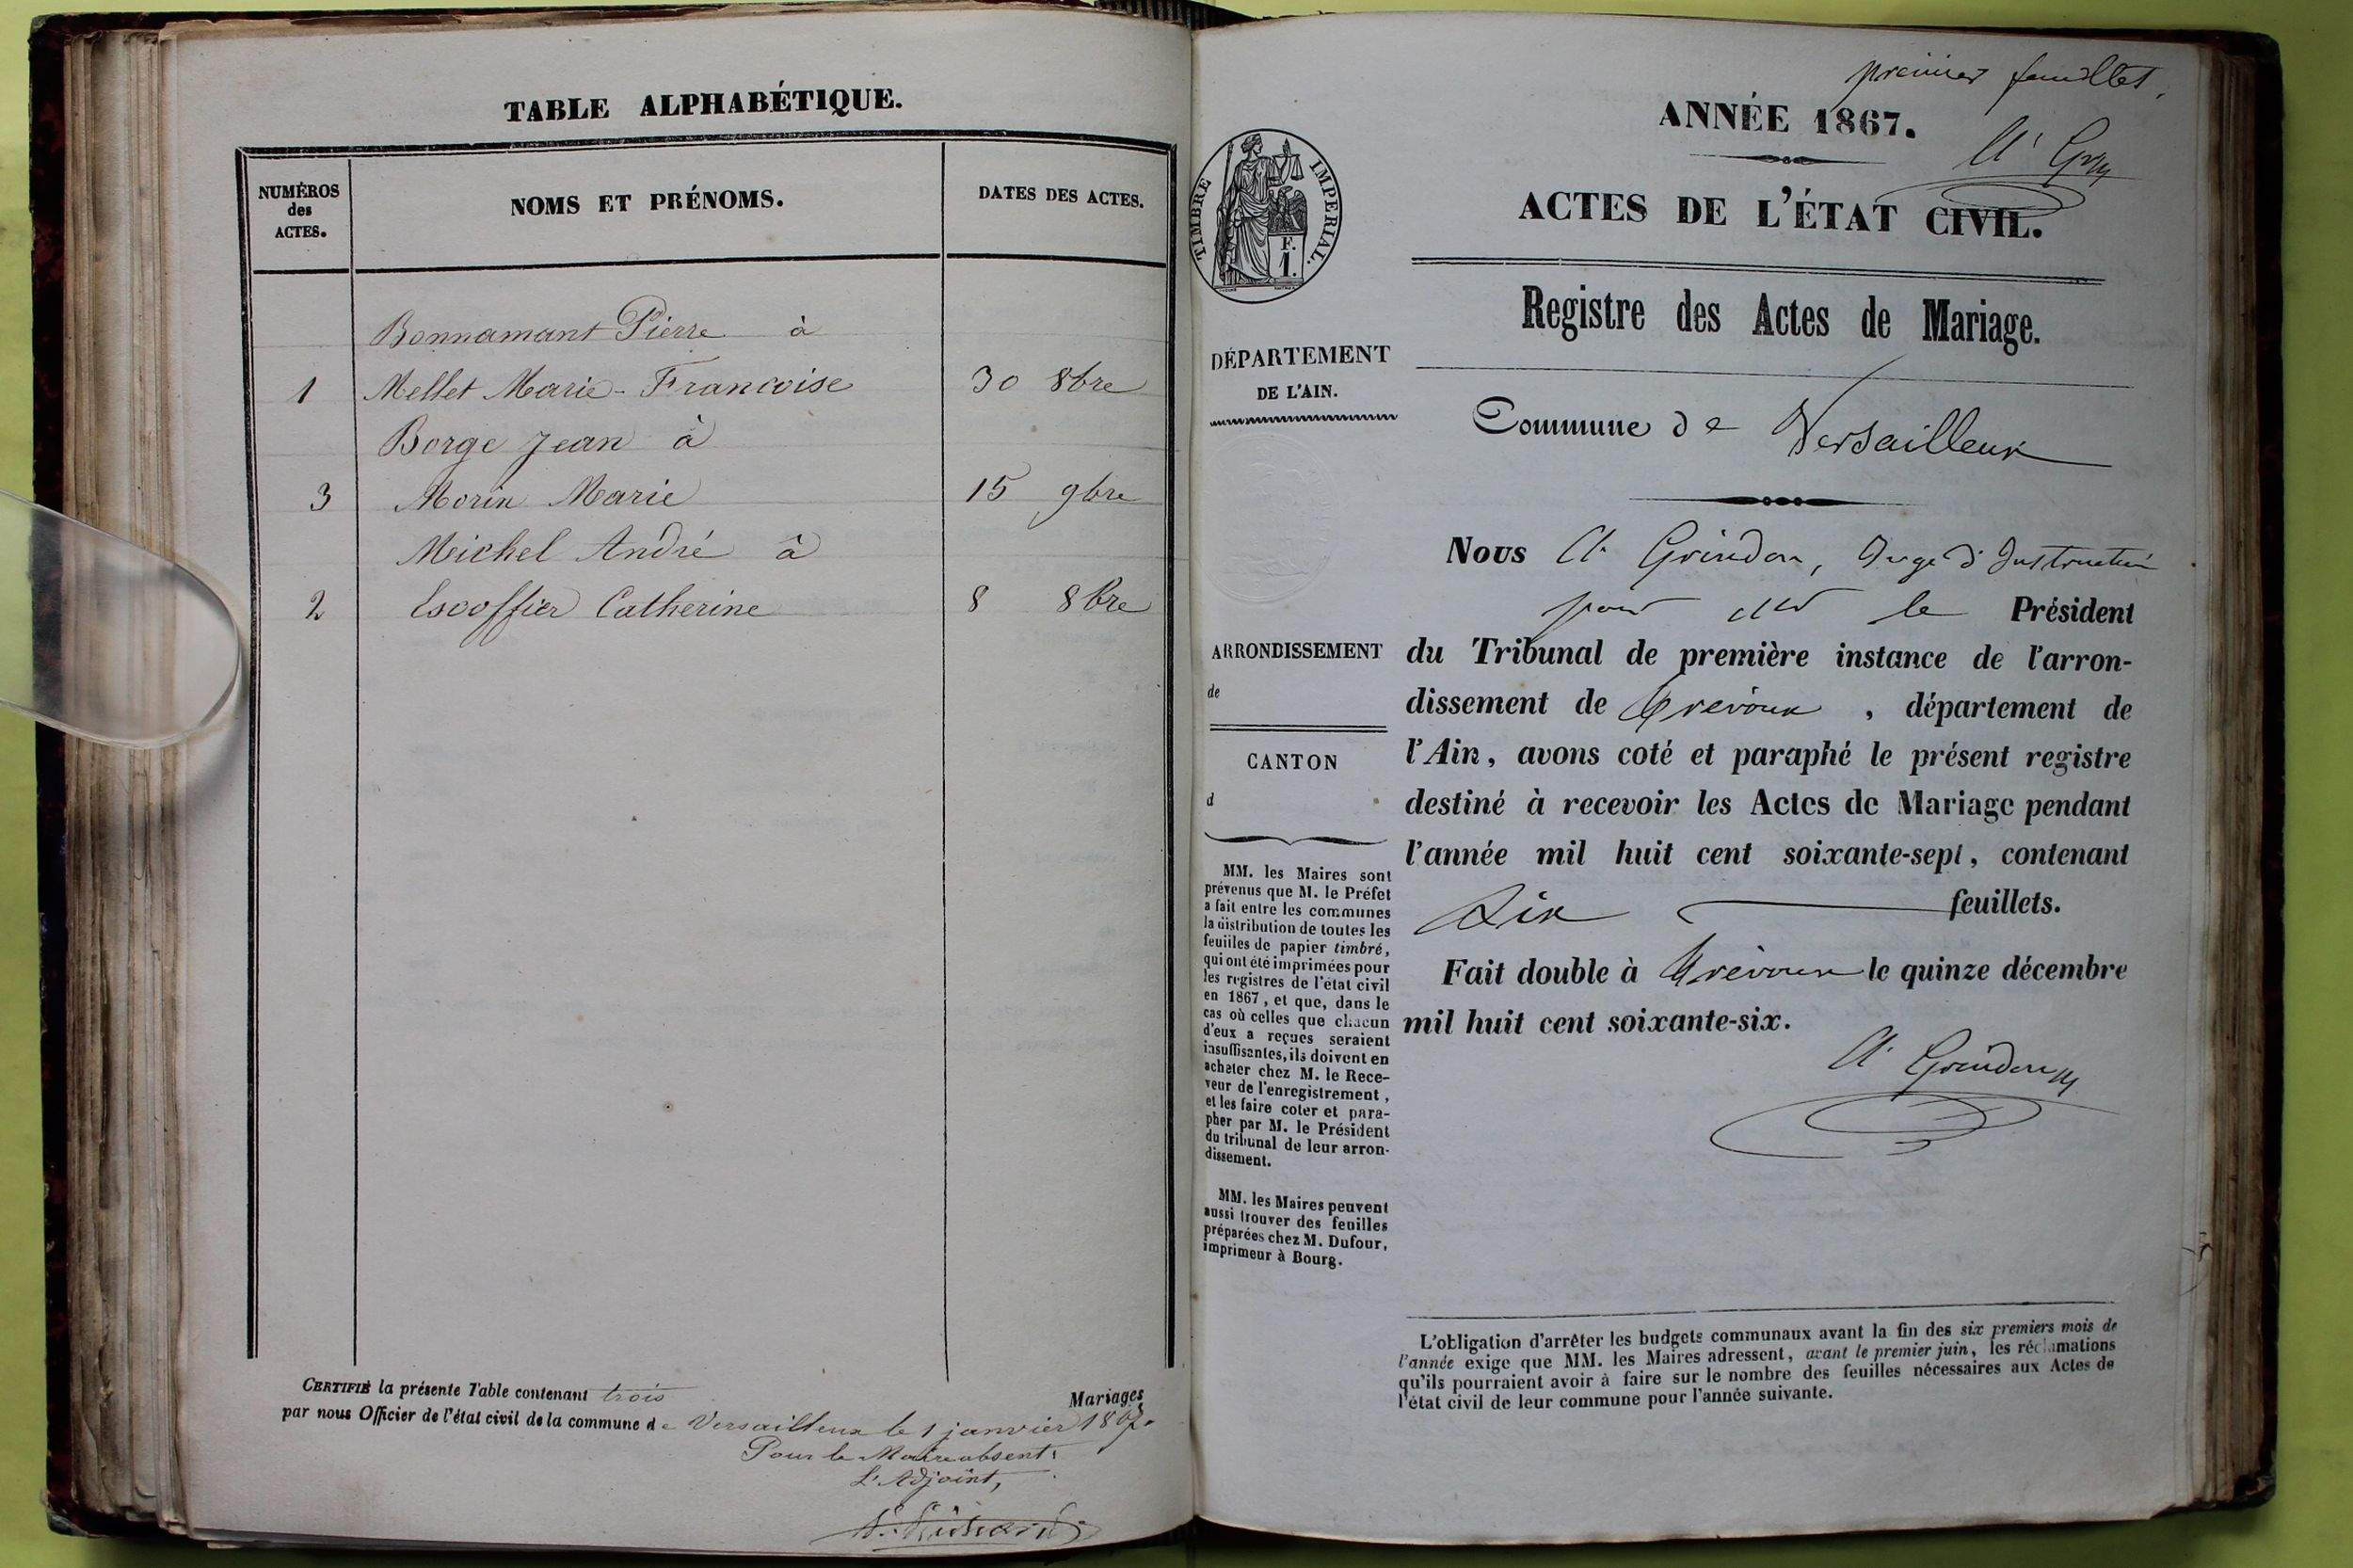 TABLE ALPHABÉTIQUE.
NUMÉROS
des
ACTES.
NOMS ET PRÉNOMS.
DATES DES ACTES.
Bonnamant Pierre à
1 Mellet Marie-Francoise 30 8bre
Borge Jean à
3 Morin Marie 15 9bre
Michel André à
2 Escoffier Catherine 8 8bre
CERTIFIÉ la présente Table contenant trois Mariages
par nous Officier de l'état civil de la commune de Versailleux le 1 janvier
Pour le Maire absent:
L'Adjoint,
premier feuillet.
ANNÉE 1867.
ACTES DE L'ÉTAT CIVIL.
TIMBRE IMPÉRIAL.
F.
1.
Registre des Actes de Mariage.
DÉPARTEMENT
DE L'AIN.
Commune de Versailleux
Nous Cl. Grindon, Juge d'Instruction
pour le Président
ARRONDISSEMENT
de
CANTON
d
du Tribunal de première instance de l'arron-
dissement de Trévoux, département de
l'Ain, avons coté et paraphé le présent registre
destiné à recevoir les Actes de Mariage pendant
l'année mil huit cent soixante-sept, contenant
feuillets.
Fait double à Trévoux le quinze décembre
mil huit cent soixante-six.
Cl. Grindon
MM. les Maires sont
prévenus que M. le Préfet
a fait entre les communes
la distribution de toutes les
feuilles de papier timbré,
qui ont été imprimées pour
les registres de l'état civil
en 1867, et que, dans le
cas où celles que chacun
d'eux a reçues seraient
insuffisantes, ils doivent en
acheter chez M. le Rece-
veur de l'enregistrement,
et les faire coter et para-
pher par M. le Président
du tribunal de leur arron-
dissement.
MM. les Maires peuvent
aussi trouver des feuilles
préparées chez M. Dufour,
imprimeur à Bourg.
L'obligation d'arrêter les budgets communaux avant la fin des six premiers mois de
l'année exige que MM. les Maires adressent, avant le premier juin, les réclamations
qu'ils pourraient avoir à faire sur le nombre des feuilles nécessaires aux Actes de
l'état civil de leur commune pour l'année suivante.